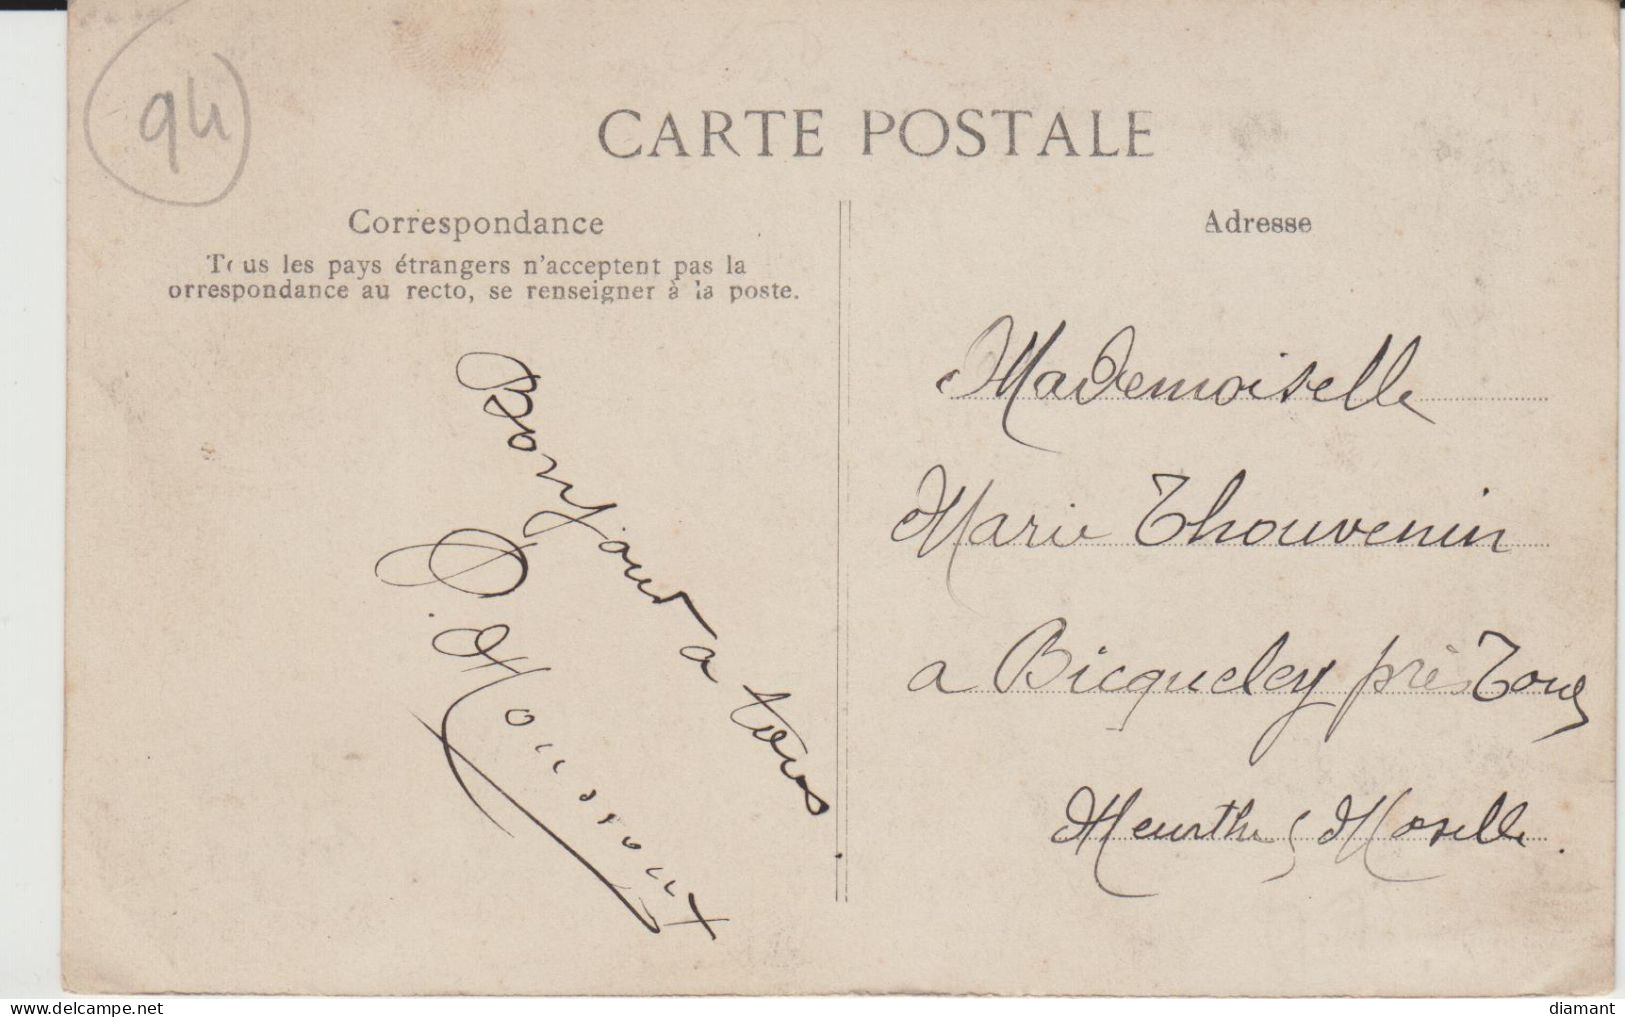 94
CARTE POSTALE
Correspondance
Tous les pays étrangers n'acceptent pas la
orrespondance au recto, se renseigner à la poste.
Bonjour a tous
Adresse
Mademoiselle
Marie Thouvenin
a Bicqueley près Toul
Meurthe & Moselle.
www.delcampe.net
diamant